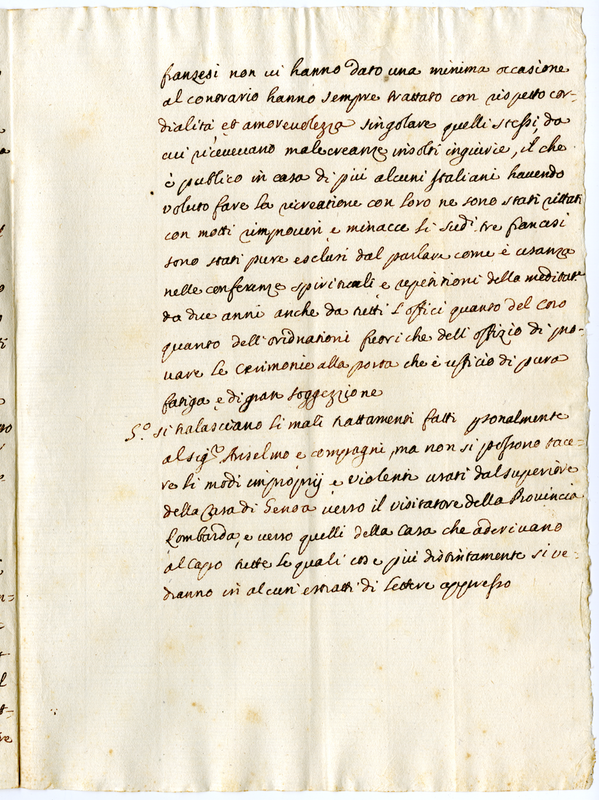 franzesi non vi hanno dato una minima occasione
al contrario hanno sempre trattato con rispetto cor-
dialità et amorevolezza singolare quelli stessi, da
cui ricevevano malecreanze insolti ingiurie, il che
è publico in casa di più alcuni Italiani havendo
voluto fare la ricreatione con loro ne sono stati
con motti rimproveri e minacce li sud.i tre francesi
sono stati pure esclusi dal parlare come è usanza
nelle conferenze spirituali e repetitioni della meditat.e
da due anni anche da tutti l'offici quanto del coro
quanto dell'ordinationi fuori che dell'offizio di pro-
vare le cerimonie alla porta che è ufficio di pura
fatiga e di gran soggezzione
5.o si tralasciano li mali trattamenti fatti psonalmente
al sig.r Anselmo e compagni, ma non si possono tace-
re li modi improprij e violenti usati dal superiore
della Casa di Genoa verso il visitatore della Provincia
Lombarda, e verso quelli della Casa che aderivano
al Capo tutte le quali cose più distintamente si ve-
dranno in alcuni estratti di lettere appresso